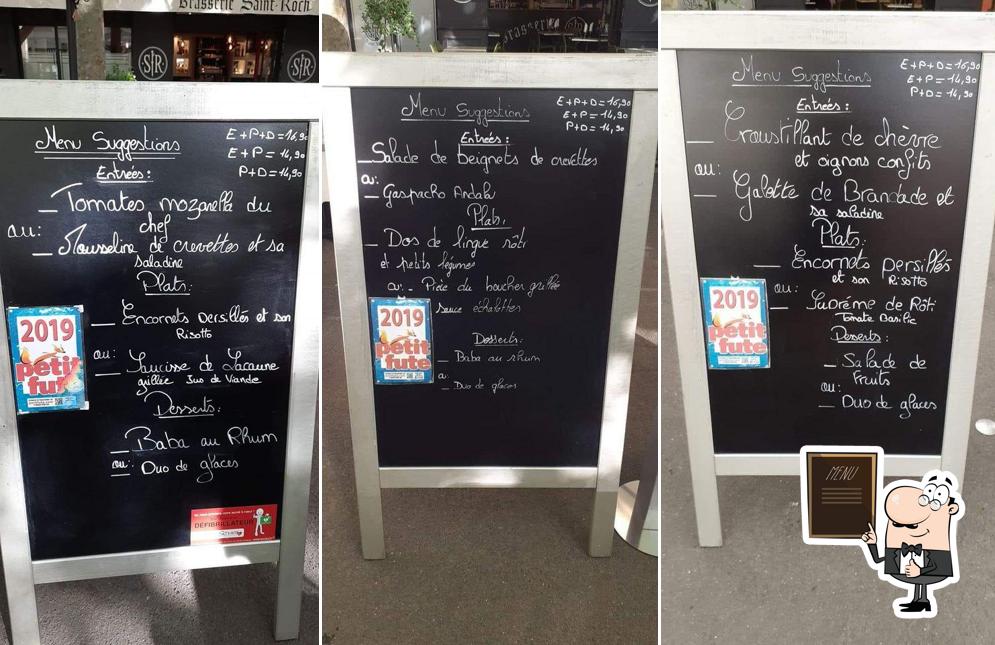 Brasserie Saint-Roch
SR
SR
Menu Suggestions
E+P+D=16,90
E+P=14,90
P+D=14,90
Entrées:
_ Tomates mozarella du
chef
ou:
_ Mousseline de crevettes et sa
saladine
Plats:
_ Encornets persillés et son
Risotto
ou:
_ Saucisse de Lacaune
grillée Jus de Viande
Desserts:
_ Baba au Rhum
ou: _ Duo de glaces
2019
petit
futé
DÉFIBRILLATEUR
Brasserie
SR
Menu Suggestions
E+P+D=16,90
E+P=14,90
P+D=14,90
Entrées:
_ Salade de beignets de crevettes
ou:
_ Gaspacho Andalou
Plats:
_ Dos de lingue rôti
et petits légumes
ou: _ Pièce du boucher grillée
sauce échalottes
Desserts:
_ Baba au rhum
ou:
_ Duo de glaces
2019
petit
futé
Menu Suggestions
E+P+D=16,90
E+P=14,90
P+D=14,90
Entrées:
_ Croustillant de chèvre
et oignons confits
ou:
_ Galette de Brandade et
sa saladine
Plats:
_ Encornets persillés
et son Risotto
ou:
_ Suprême de Rôti
Tomate Basilic
Desserts:
_ Salade de
Fruits
ou:
_ Duo de glaces
2019
petit
futé
MENU